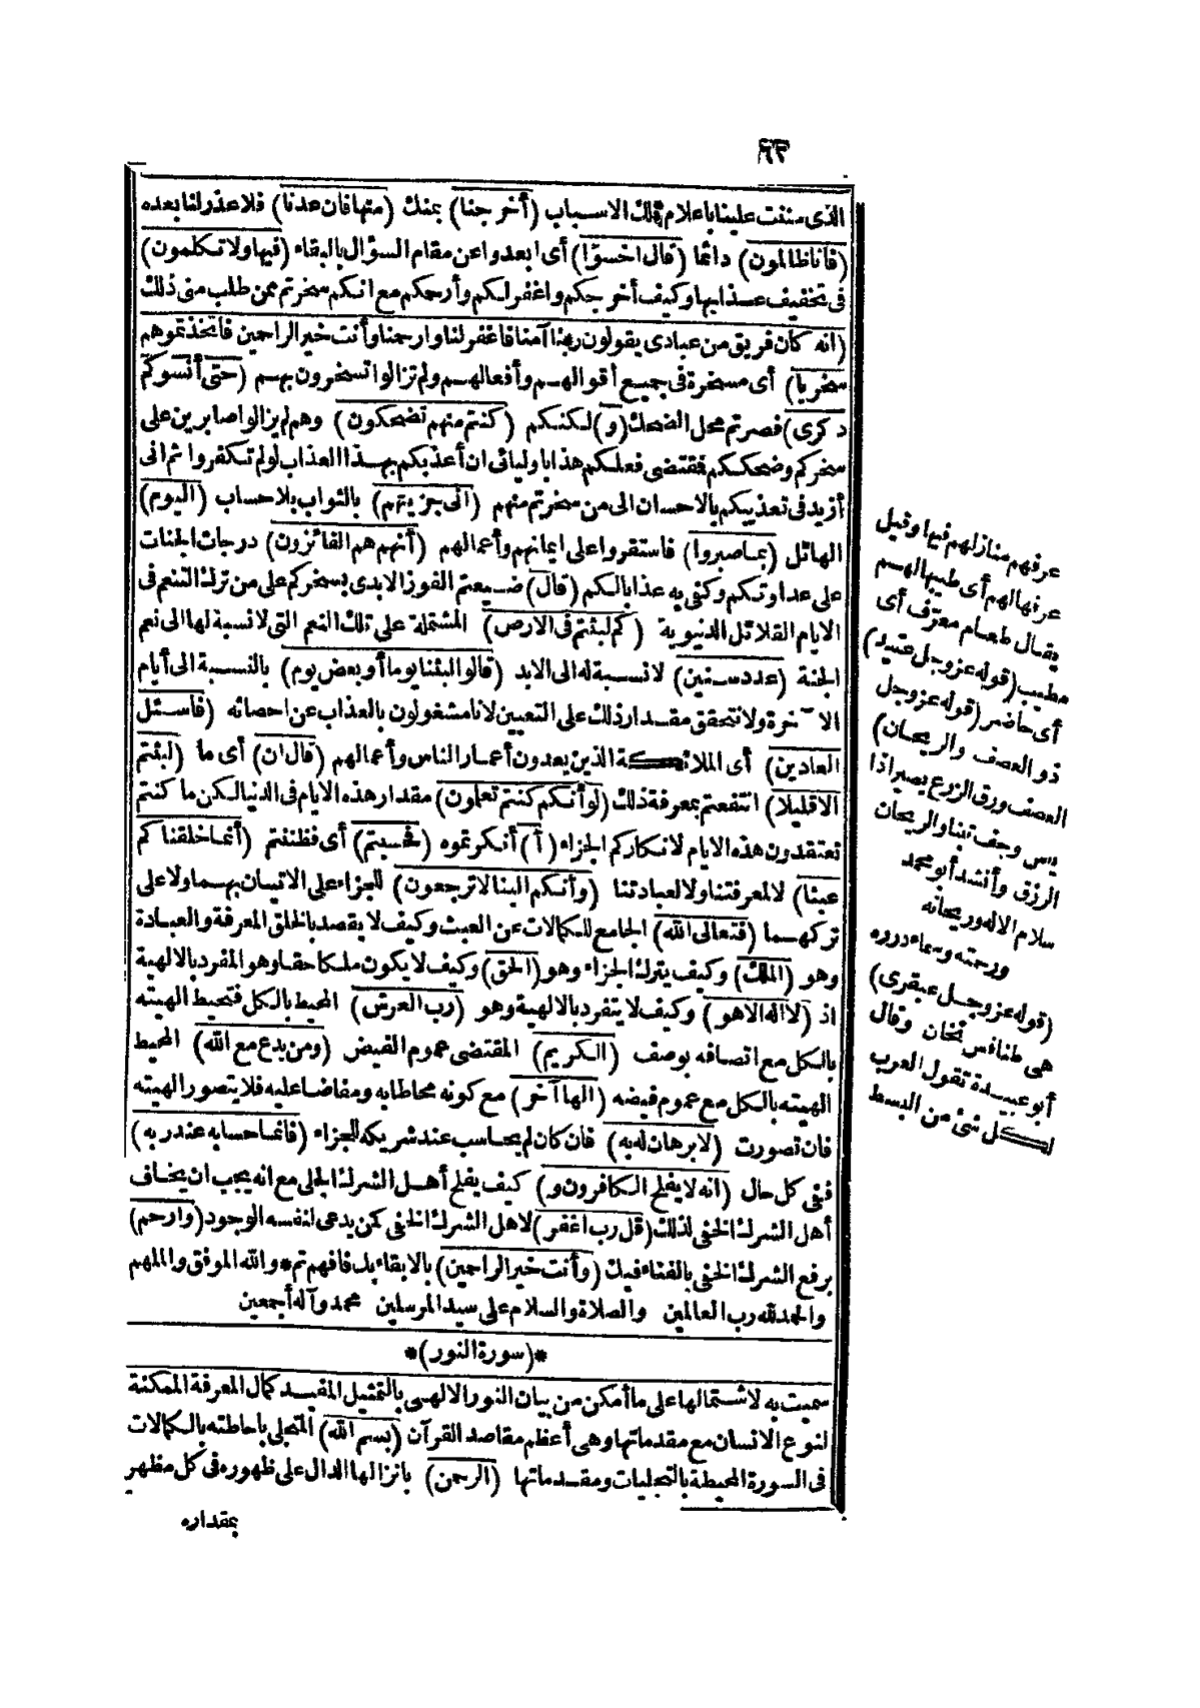 ٦٣
الذى مننت علينا باعلام تلك الاسباب (أخرجنا) بمنك (منها فان عدنا) فلا عذر لنا بعده
(فانا ظالمون) دائما (قال اخسؤا) أى ابعدوا عن مقام السؤال بالبقاء (فيها ولا تكلمون)
فى تخفيف عذابها وكيف أخرجكم واغفر لكم وأرحمكم مع انكم سخرتم ممن طلب منى ذلك
(انه كان فريق من عبادى يقولون ربنا آمنا فاغفر لنا وارحمنا وأنت خير الراحمين فاتخذتموهم
سخريا) أى مسخرة فى جميع أقوالهم وأفعالهم ولم تزالوا تسخرون بهم (حتى أنسوكم
ذكرى) فصرتم محل الضحك (و) لكنكم (كنتم منهم تضحكون) وهم لم يزالوا صابرين على
سخركم وضحككم فمقتضى فعلكم هذا باوليائى ان أعذبكم بهذا العذاب لو لم تكفروا ثم انى
أزيد فى تعذيبكم بالاحسان الى من سخرتم منهم (انى جزيتهم) بالثواب بلا حساب (اليوم)
الهائل (بما صبروا) فاستقروا على ايمانهم وأعمالهم (أنهم هم الفائزون) درجات الجنات
على عداوتكم وكفى به عذابا لكم (قال) ضيعتم الفوز الابدى بسخركم على من ترك التنعم فى
الايام القلائل الدنيوية (كم لبثتم فى الارض) المشتملة على تلك النعم التى لا نسبة لها الى نعم
الجنة (عدد سنين) لا نسبة له الى الابد (قالوا لبثنا يوما أو بعض يوم) بالنسبة الى أيام
الآخرة ولا نتحقق مقدار ذلك على التعيين لانا مشغولون بالعذاب عن احصائه (فاسئل
العادين) أى الملائكة الذين يعدون أعمار الناس وأعمالهم (قال ان) أى ما (لبثتم
الا قليلا) انتفعتم بمعرفة ذلك (لو أنكم كنتم تعلمون) مقدار هذه الايام فى الدنيا لكن ما كنتم
تعتقدون هذه الايام لانكاركم الجزاء (أ) أنكرتموه (فحسبتم) أى فظننتم (أنما خلقناكم
عبثا) لا لمعرفتنا ولا لعبادتنا (وأنكم الينا لا ترجعون) للجزاء على الاتيان بهما ولا على
تركهما (فتعالى الله) الجامع للكمالات عن العبث وكيف لا يقصد بالخلق المعرفة والعبادة
وهو (الملك) وكيف يترك الجزاء وهو (الحق) وكيف لا يكون ملكا حقا وهو المفرد بالالهية
اذ (لا اله الا هو) وكيف لا يتفرد بالالهية وهو (رب العرش) المحيط بالكل فتحيط الهيته
بالكل مع اتصافه بوصف (الكريم) المقتضى عموم الفيض (ومن يدع مع الله) المحيط
الهيته بالكل مع عموم فيضه (الها آخر) مع كونه محاطا به ومفاضا عليه فلا يتصور الهيته
فان تصورت (لا برهان له به) فان كان لم يحاسب عند شريكه للجزاء (فانما حسابه عند ربه)
ففى كل حال (انه لا يفلح الكافرون و) كيف يفلح أهل الشرك الجلى مع انه يجب ان يخاف
أهل الشرك الخفى لذلك (قل رب اغفر) لاهل الشرك الخفى كمن يدعى لنفسه الوجود (وارحم)
برفع الشرك الخفى بالفناء فيك (وأنت خير الراحمين) بالابقاء بك فافهم تم * والله الموفق والملهم
والحمد لله رب العالمين والصلاة والسلام على سيد المرسلين محمد وآله أجمعين
*(سورة النور)*
سميت به لاشتمالها على ما أمكن من بيان النور الالهى بالتمثيل المفيد كمال المعرفة الممكنة
لنوع الانسان مع مقدماتها وهى أعظم مقاصد القرآن (بسم الله) المتجلى باحاطته بالكمالات
فى السورة المحيطة بالتجليات ومقدماتها (الرحمن) بانزالها الدال على ظهوره فى كل مظهر
بمقداره
عرفهم منازلهم فيها وقيل
عرفها لهم أى طيبها لهم
يقال طعام معرّف أى
مطيب (قوله عز وجل عتيد)
أى حاضر (قوله عز وجل
ذو العصف والريحان)
العصف ورق الزرع يصير اذا
يبس وجف تبنا والريحان
الرزق وأنشد أبو محمد
سلام الاله وريحانه
ورحمته وسماء درره
(قوله عز وجل عبقرى)
هى طنافس ثخان وقال
أبو عبيدة تقول العرب
لكل شئ من البسط